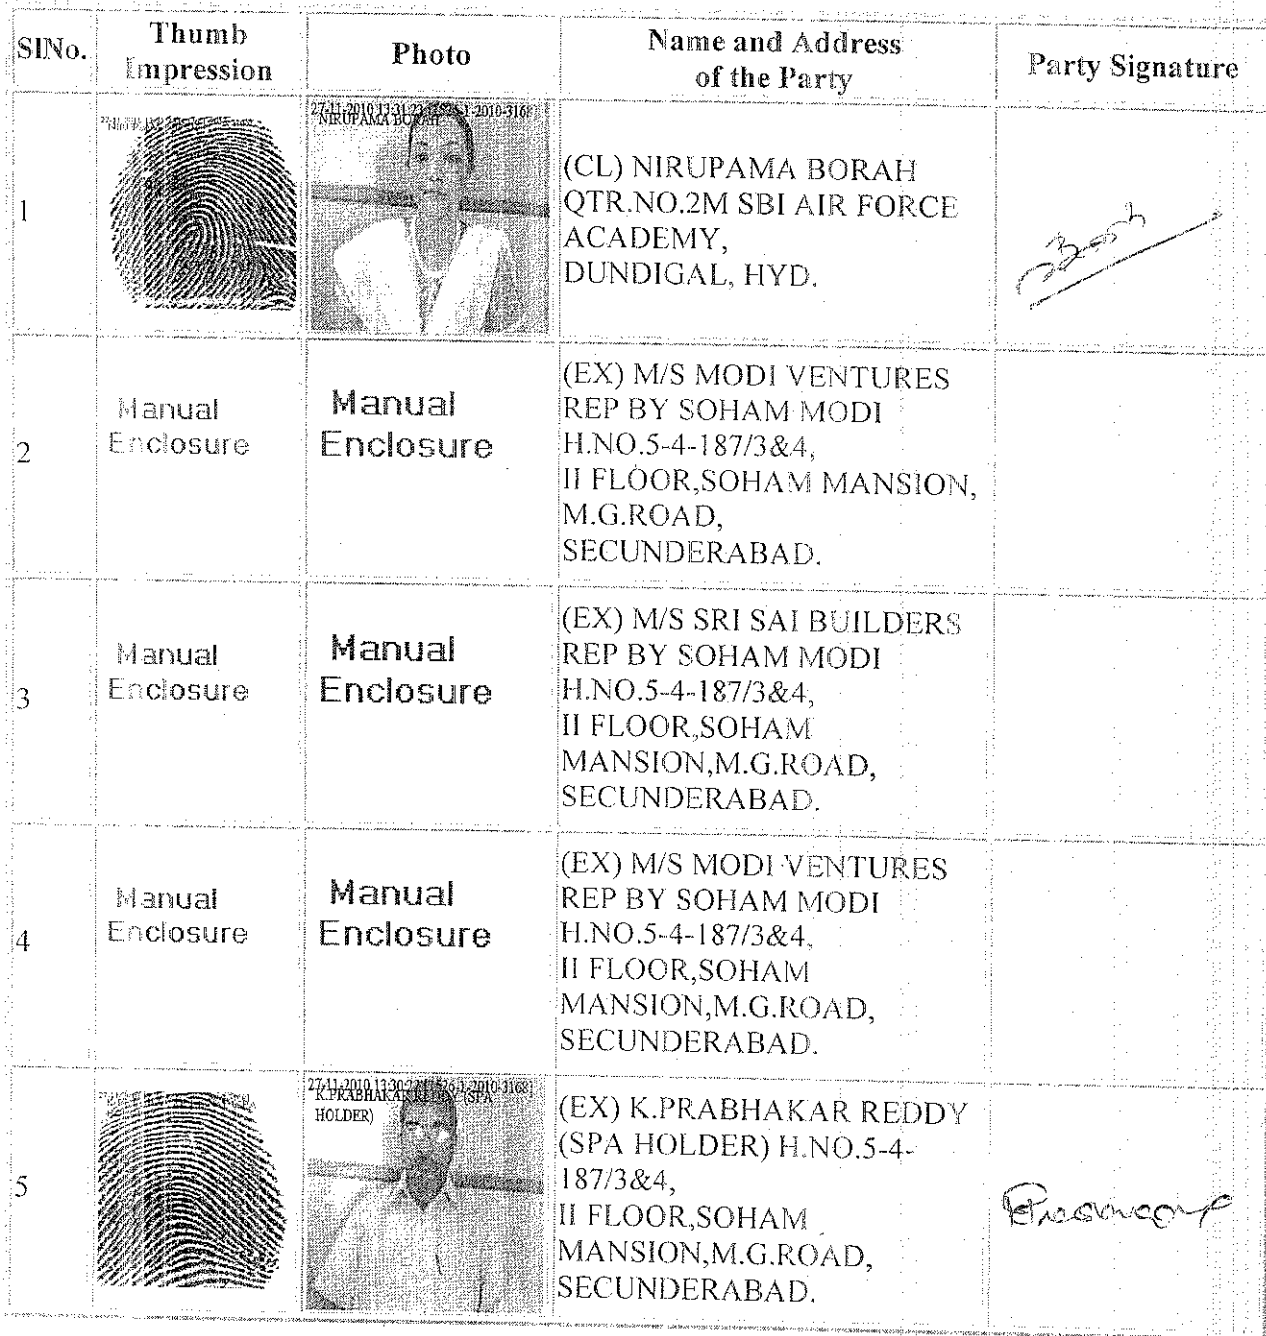 SlNo.
Thumb
Impression
Photo
Name and Address
of the Party
Party Signature
1
27-11-2010 13:31:23
NIRUPAMA BORAH
(CL) NIRUPAMA BORAH
QTR.NO.2M SBI AIR FORCE
ACADEMY,
DUNDIGAL, HYD.
2
Manual
Enclosure
Manual
Enclosure
(EX) M/S MODI VENTURES
REP BY SOHAM MODI
H.NO.5-4-187/3&4,
II FLOOR,SOHAM MANSION,
M.G.ROAD,
SECUNDERABAD.
3
Manual
Enclosure
Manual
Enclosure
(EX) M/S SRI SAI BUILDERS
REP BY SOHAM MODI
H.NO.5-4-187/3&4,
II FLOOR,SOHAM
MANSION,M.G.ROAD,
SECUNDERABAD.
4
Manual
Enclosure
Manual
Enclosure
(EX) M/S MODI VENTURES
REP BY SOHAM MODI
H.NO.5-4-187/3&4,
II FLOOR,SOHAM
MANSION,M.G.ROAD,
SECUNDERABAD.
5
27-11-2010 13:30:22
K.PRABHAKAR REDDY (SPA
HOLDER)
(EX) K.PRABHAKAR REDDY
(SPA HOLDER) H.NO.5-4-
187/3&4,
II FLOOR,SOHAM
MANSION,M.G.ROAD,
SECUNDERABAD.